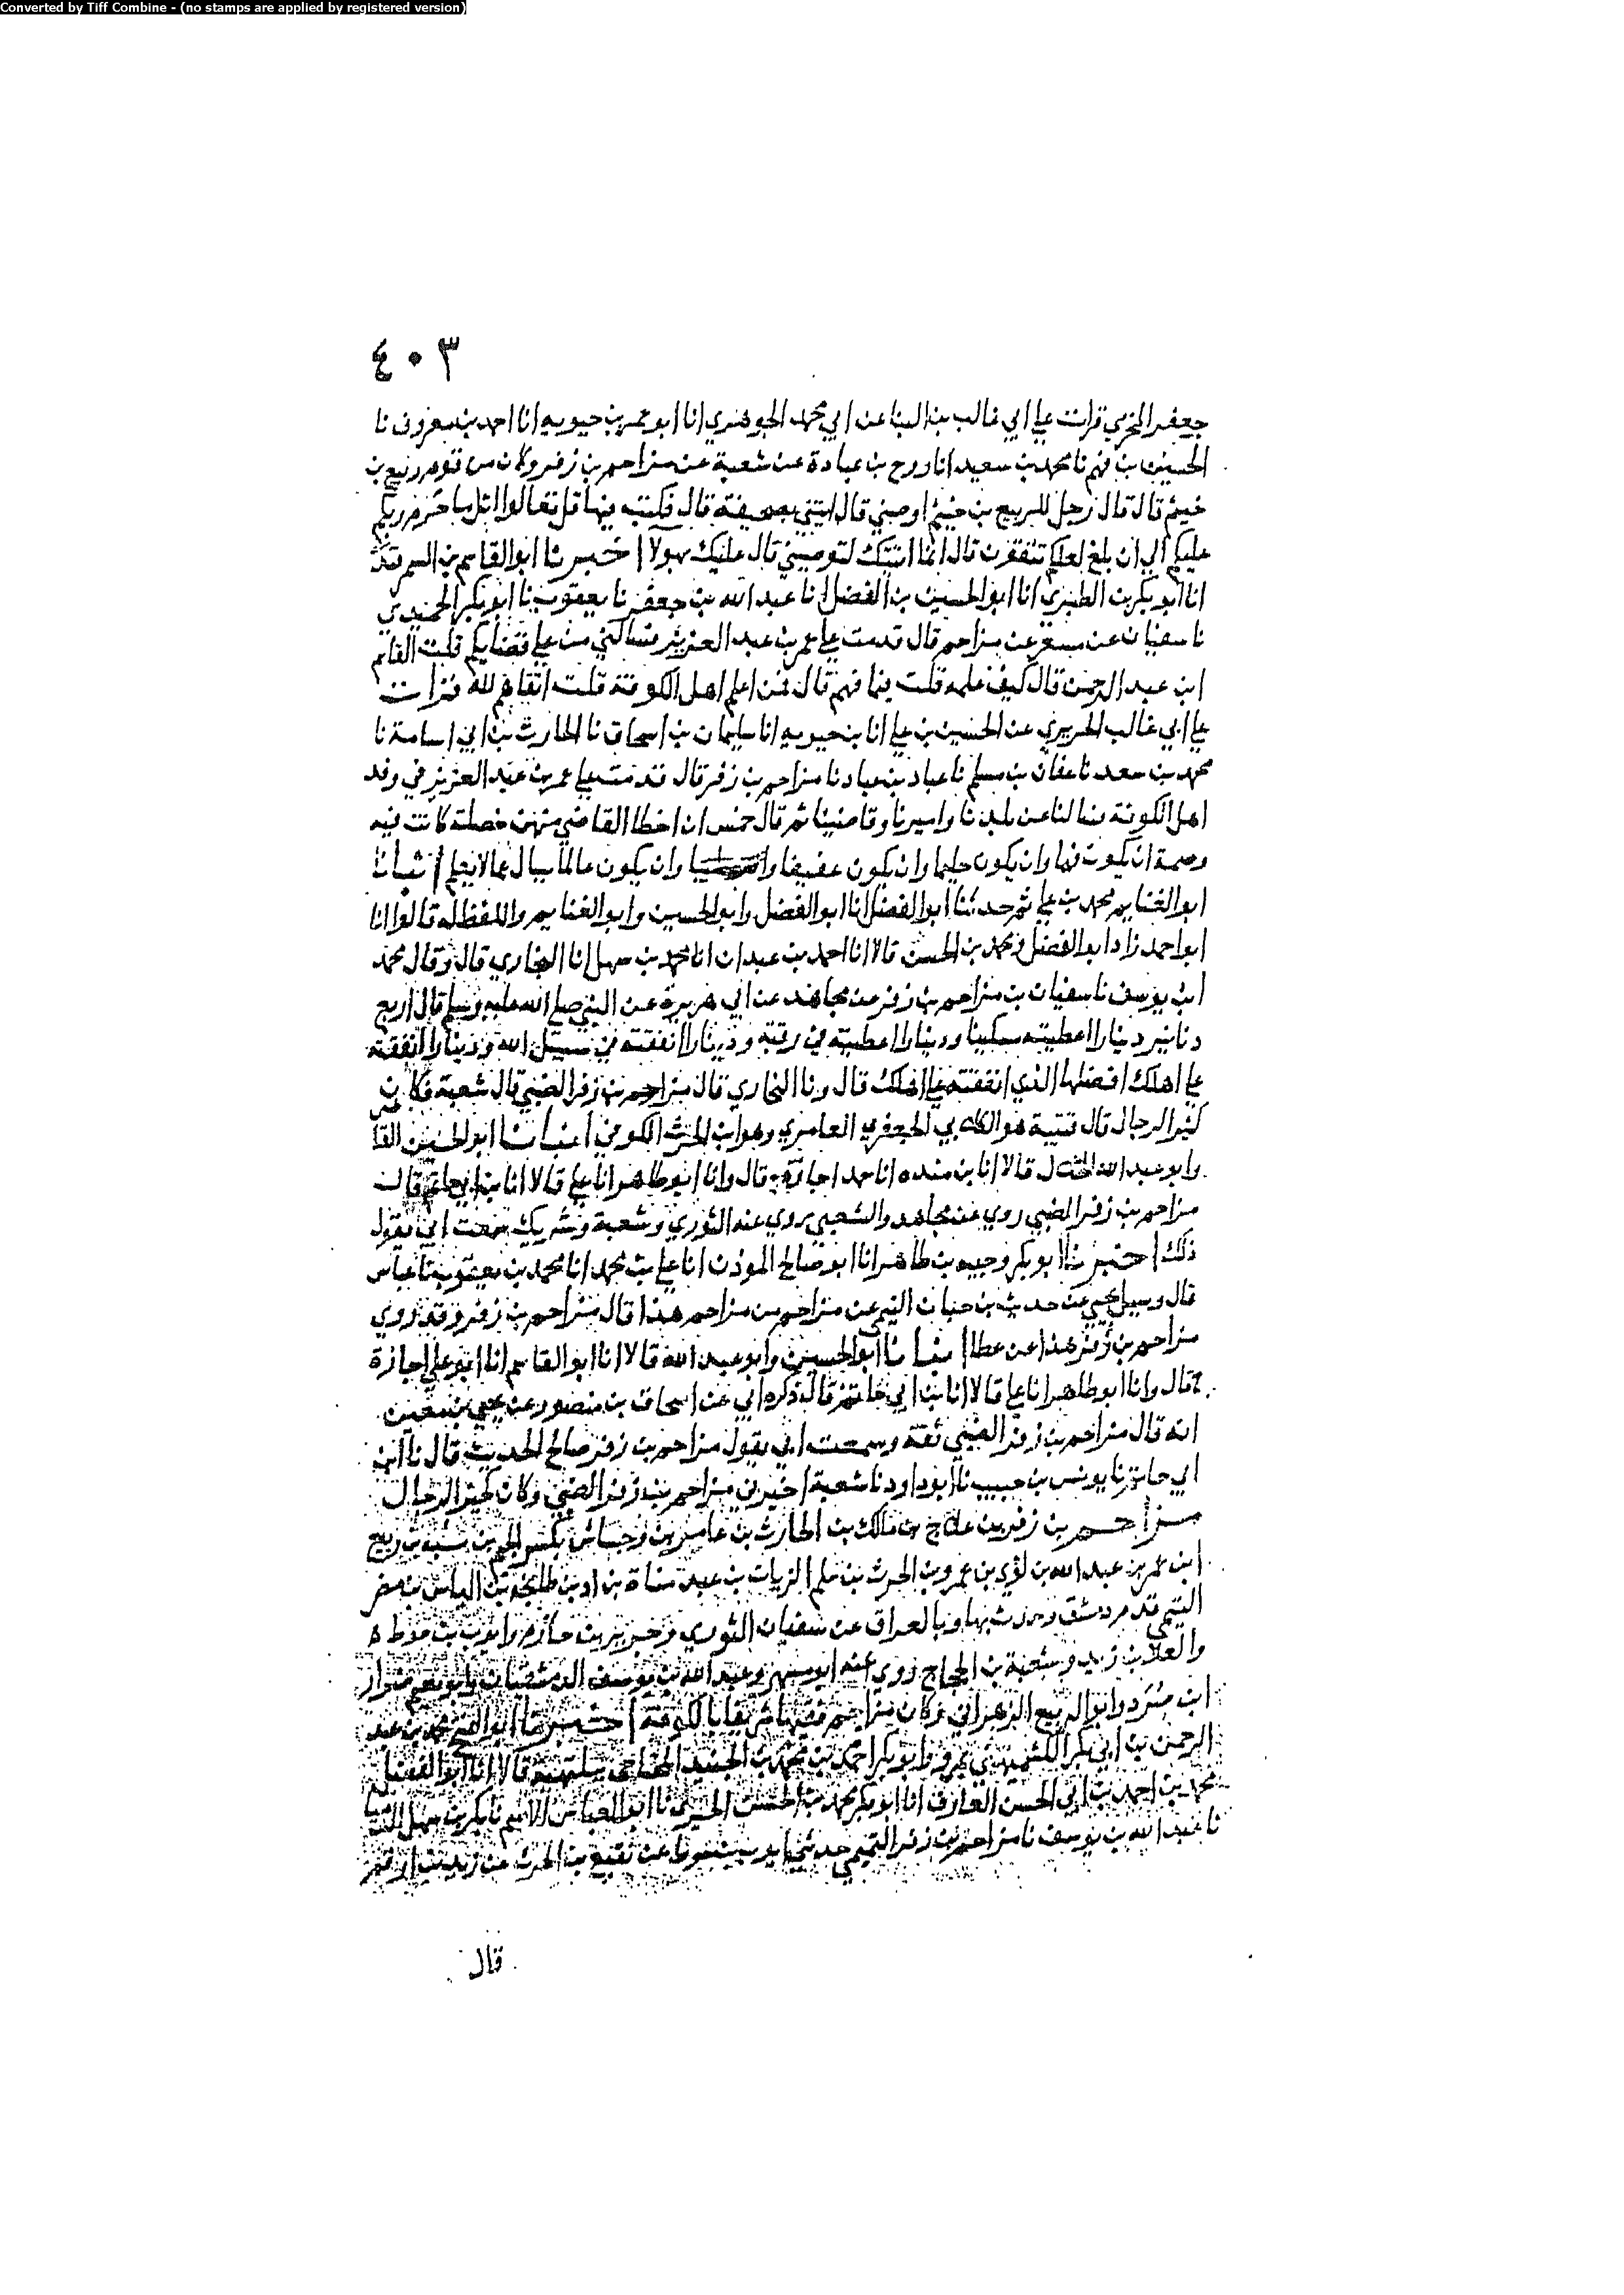 Converted by Tiff Combine - (no stamps are applied by registered version)
٤٠٣
جعفر المخرمي قرات علي ابي غالب بن البنا عن ابي محمد الجوهري انا ابو عمر بن حيويه انا احمد بن معروف نا
الحسين بن فهم نا محمد بن سعيد انا روح بن عبادة عن شعبة عن مزاحم بن زفر وكان من قوم ربيع بن
خيثم قال قال رجل للربيع بن خيثم اوصني قال ايتني بصحيفة قال فكتب فيها قل تعالوا اتل ما حرم ربكم
عليكم الي ان بلغ لعلكم تتقون قال انما اتيتك لتوصيني قال عليك بهولا اخبرنا ابو القاسم بن السمرقندي
انا ابو بكر بن الطبري انا ابو الحسين بن الفضل انا عبد الله بن جعفر نا يعقوب نا ابو بكر الحميدي
نا سفيان عن مسعر عن مزاحم قال قدمت علي عمر بن عبد العزيز فسالني من علي قضايكم قلت القاسم
ابن عبد الرحمن قال كيف علمه قلت فيما فهم قال فمن اعلم اهل الكوفة قلت اتقاهم لله قرات
علي ابي غالب الحريري عن الحسين بن علي انا بن حيويه انا سليمان بن اسحاق نا الحارث بن ابي اسامة نا
محمد بن سعد نا عفان بن مسلم نا عباد بن عباد نا مزاحم بن زفر قال قدمت علي عمر بن عبد العزيز في وفد
اهل الكوفة فسالنا عن بلدنا واميرنا وقاضينا ثم قال خمس ان اخطا القاضي منهن خصلة كانت فيه
وصمة ان يكون فهما وان يكون حليما وان يكون عفيفا وان يكون عالما يسال عما لا يعلم انبانا
ابو الغنايم محمد بن علي ثم حدثنا ابو الفضل انا ابو الفضل وابو الحسين وابو الغنايم واللفظ له قالوا انا
ابو احمد زاد ابو الفضل ومحمد بن الحسن قالا انا احمد بن عبدان انا محمد بن سهل انا البخاري قال وقال محمد
ابن يوسف نا سفيان بن مزاحم بن زفر عن مجاهد عن ابي هريرة عن النبي صلي الله عليه وسلم قال اربع
دنانير دينارا اعطيته مسكينا ودينارا اعطيته في رقبة ودينارا انفقته في سبيل الله ودينارا انفقته
علي اهلك افضلها الذي انفقته علي اهلك قال ونا البخاري قال مزاحم بن زفر الضبي قال شعبة فكان
كخير الرجال قال قتيبة هو الكلابي الجعفري العامري وهو ابن الحرث الكوفي انبانا ابو الحسين القا
وابو عبد الله الخلال قالا انا بن منده انا حمد اجازة ح قال وانا ابو طاهر انا علي قالا انا بن ابي حاتم قال
مزاحم بن زفر الضبي روي عن مجاهد والشعبي روي عنه الثوري وشعبة وشريك سمعت ابي يقول
ذلك اخبرنا ابو بكر وجيه بن طاهر انا ابو صالح الموذن انا علي بن محمد انا محمد بن يعقوب نا عباس
قال وسيل يحيي عن حديث بن حبان التيمي عن مزاحم من مزاحم هذا قال مزاحم بن زفر وقد روي
مزاحم بن زفر هذا عن عطا انبانا ابو الحسين وابو عبد الله قالا انا ابو القاسم انا ابو علي اجازة
ح قال وانا ابو طاهر انا علي قالا انا بن ابي حاتم قال ذكره ابي عن اسحاق بن منصور عن يحيي بن معين
انه قال مزاحم بن زفر الضبي ثقة وسمعت ابي يقول مزاحم بن زفر صالح الحديث قال نا ابن
ابي حاتم نا يونس بن حبيب نا ابو داود نا شعبة اخبرني مزاحم بن زفر الضبي وكان كخير الرجال
مزاحم بن زفر بن علاج بن مالك بن الحارث بن عامر بن وجساس بكسر الجيم بن نشبة بن ربيع
ابن عمر بن عبد الله بن لؤي بن عمرو بن الحرث بن تيم الزيات بن عبد مناة بن اد بن طابخة بن الياس بن مضر
التيمي قدم دمشق وحدث بها وبالعراق عن سفيان الثوري وجرير بن حازم وايوب بن خوط
والعلا بن زيد وشعبة بن الحجاج روي عنه ابو مسهر وعبد الله بن يوسف الدمشقيان وابو نعيم ضرار
ابن صرد وابو الربيع الزهراني وكان مزاحم فقيها شريفا بالكوفة اخبرنا ابو الفتح محمد بن عبد
الرحمن بن ابي بكر الكشميهني بمرو وابو بكر احمد بن محمد بن الجنيد قالا انا ابو الفضل
محمد بن احمد بن ابي الحسن العارف انا ابو بكر محمد بن الحسن الحيري نا ابو العباس الاصم نا بكر بن سهل
نا عبد الله بن يوسف نا مزاحم بن زفر التيمي حدثني ايوب بن خوط عن نفيع بن الحرث عن زيد بن ارقم
قال